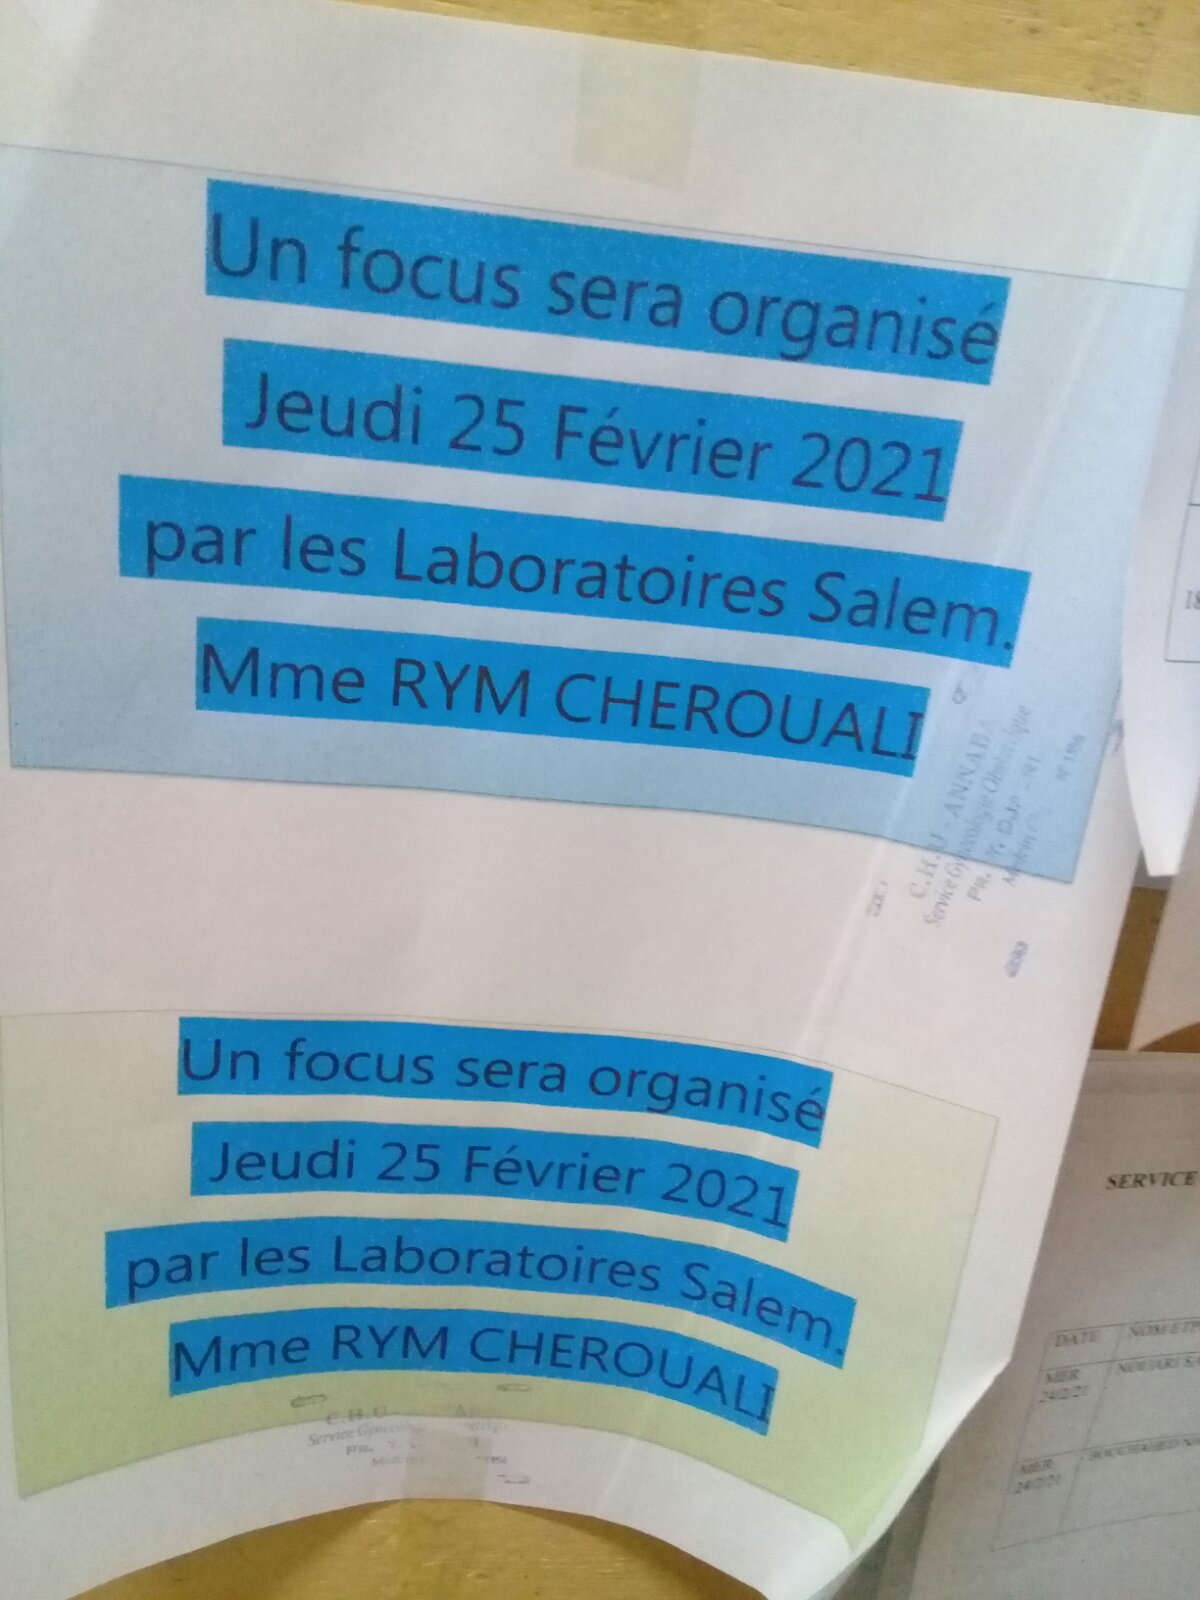 Un focus sera organisé
Jeudi 25 Février 2021
par les Laboratoires Salem.
Mme RYM CHEROUALI
C.H.U - ANNABA
Service Gynécologie Obstétrique
PR. Y.
Un focus sera organisé
Jeudi 25 Février 2021
par les Laboratoires Salem.
Mme RYM CHEROUALI
C.H.U
Service
PR. Y.
18
SERVICE
DATE
MER
24/2/21
MER
24/2/21